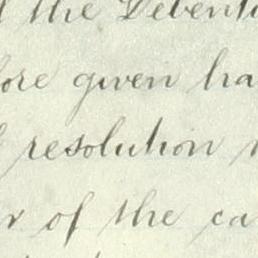 the Debent
ore given ha
resolution
r of the ca